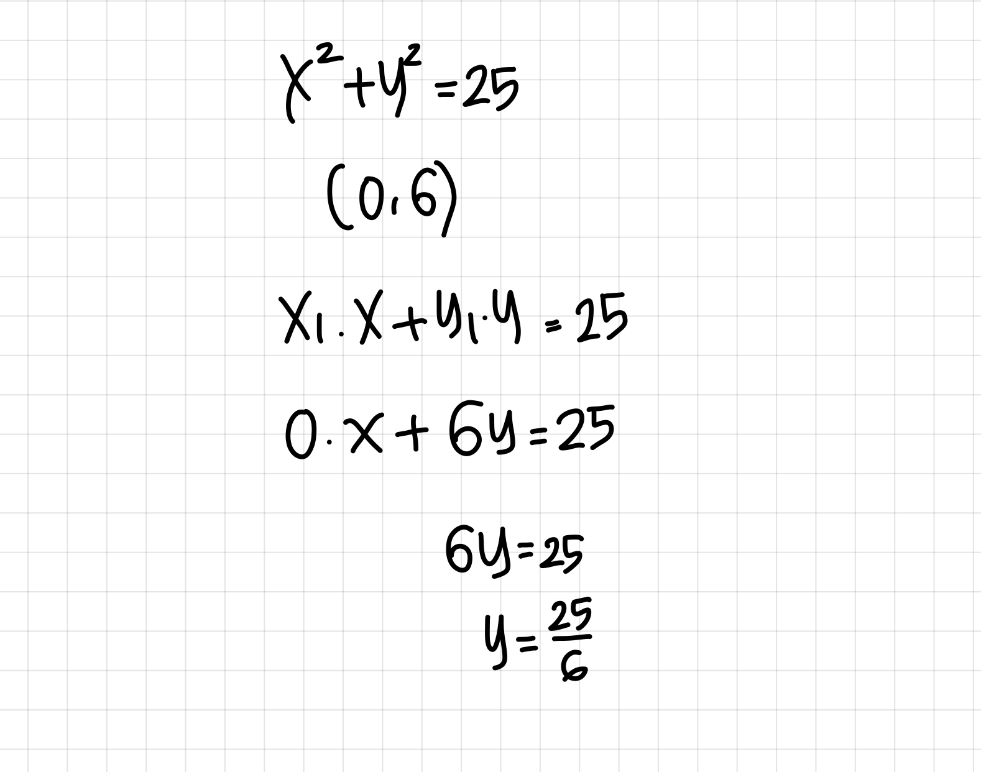 x² + y² = 25
(0, 6)
x₁ · x + y₁ · y = 25
0 · x + 6y = 25
6y = 25
y = 25/6